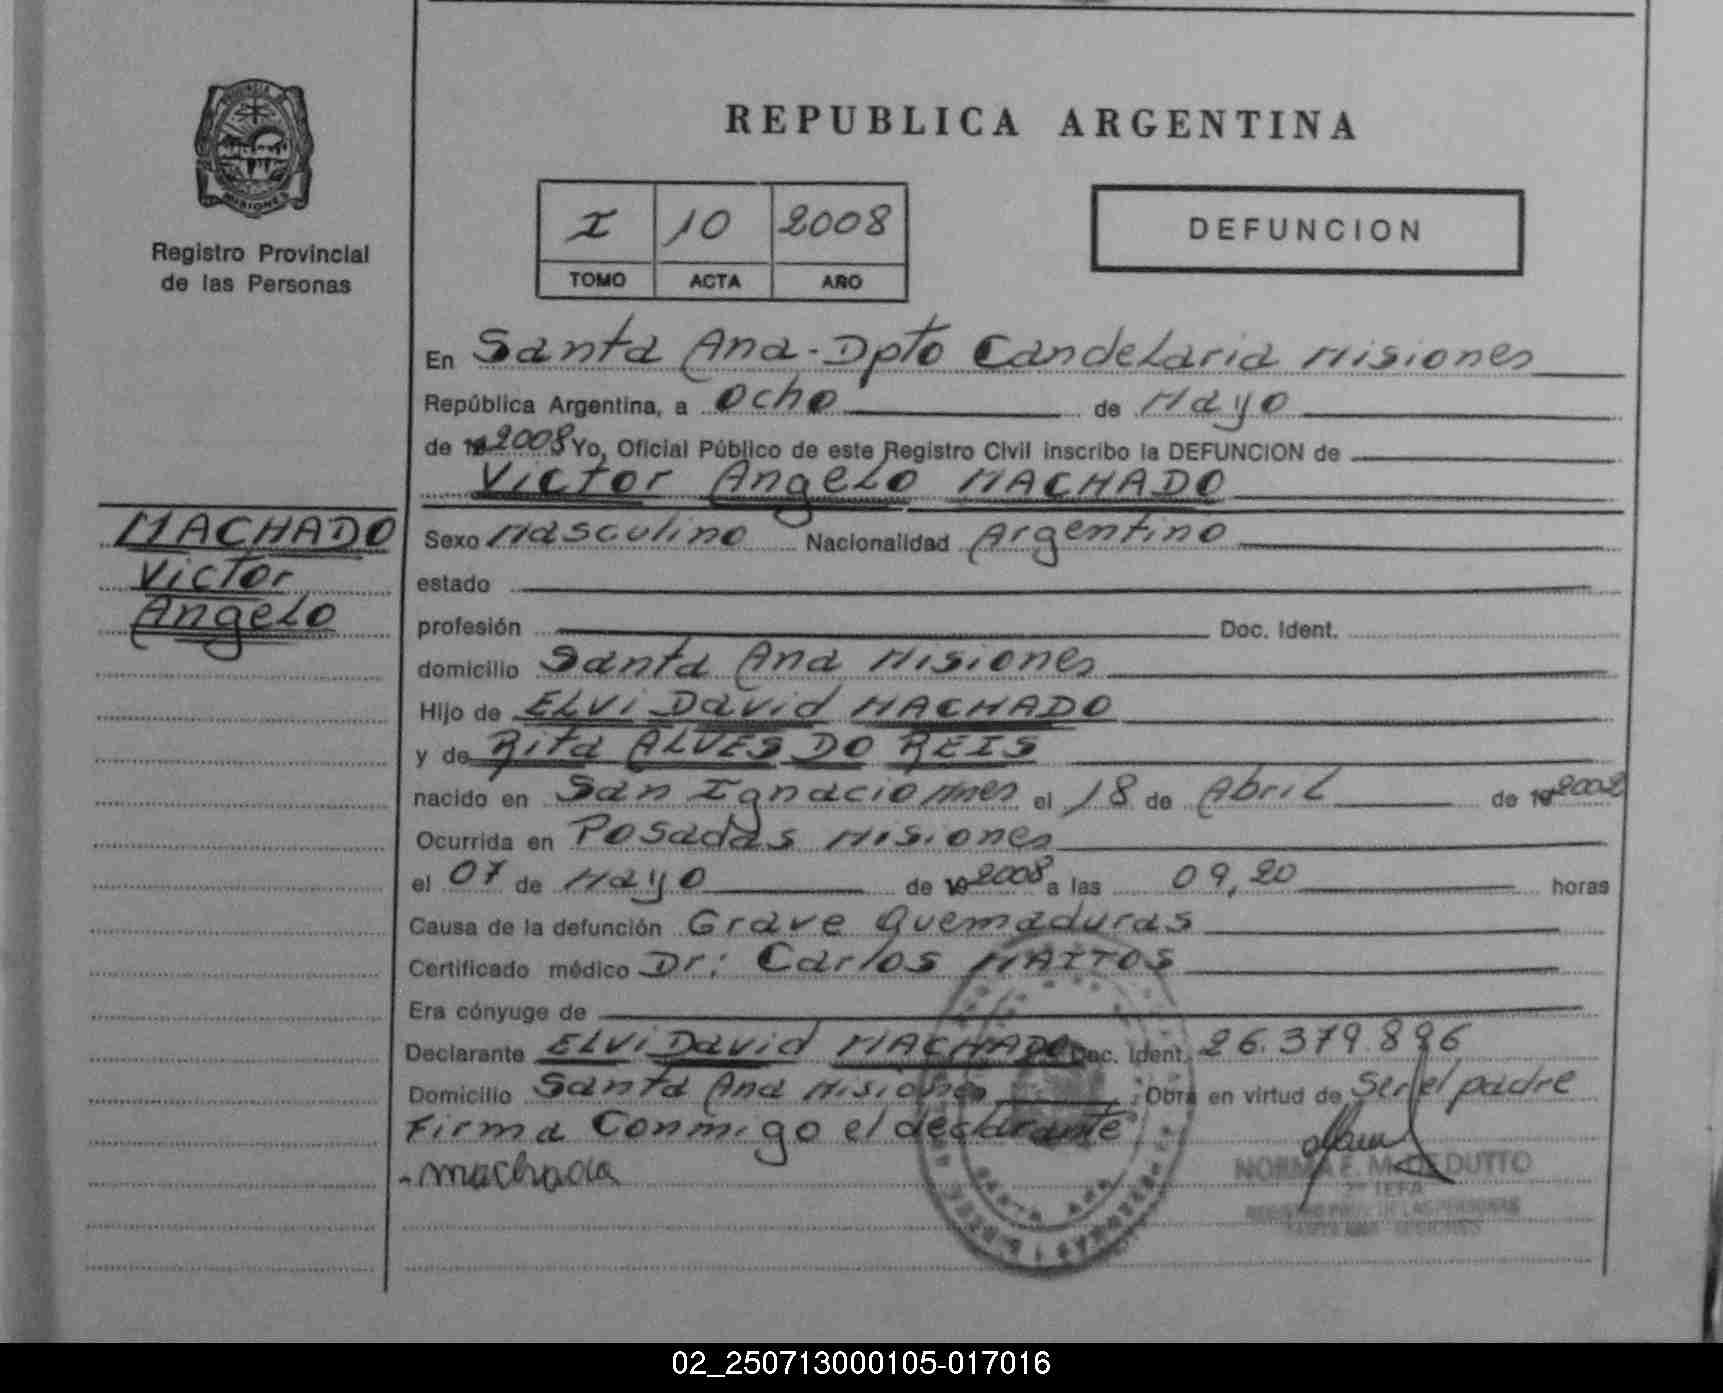 PROVINCIA DE
MISIONES
Registro Provincial
de las Personas
REPUBLICA ARGENTINA
I 10 2008
TOMO ACTA AÑO
DEFUNCION
En Santa Ana - Dpto Candelaria Misiones
República Argentina, a ocho de Mayo
de 19 2008 Yo, Oficial Público de este Registro Civil inscribo la DEFUNCION de
Victor Angelo MACHADO
MACHADO
Victor
Angelo
Sexo Masculino Nacionalidad Argentino
estado
profesión Doc. Ident.
domicilio Santa Ana Misiones
Hijo de ELVi David MACHADO
y de Rita ALVES DO REIS
nacido en San Ignacio Mnes el 18 de Abril de 19 2008
Ocurrida en Posadas Misiones
el 07 de Mayo de 19 2008 a las 09,20 horas
Causa de la defunción Grave Quemaduras
Certificado médico Dr: Carlos MATTOS
Era cónyuge de
Declarante ELVi David MACHADO Doc. Ident. 26.379.896
Domicilio Santa Ana Misiones Obra en virtud de Ser el padre
Firma Conmigo el declarante
machada
NORMA E. M. DE DUTTO
REGISTRO PROV. DE LAS PERSONAS
SANTA ANA - MISIONES
SANTA ANA
02_250713000105-017016